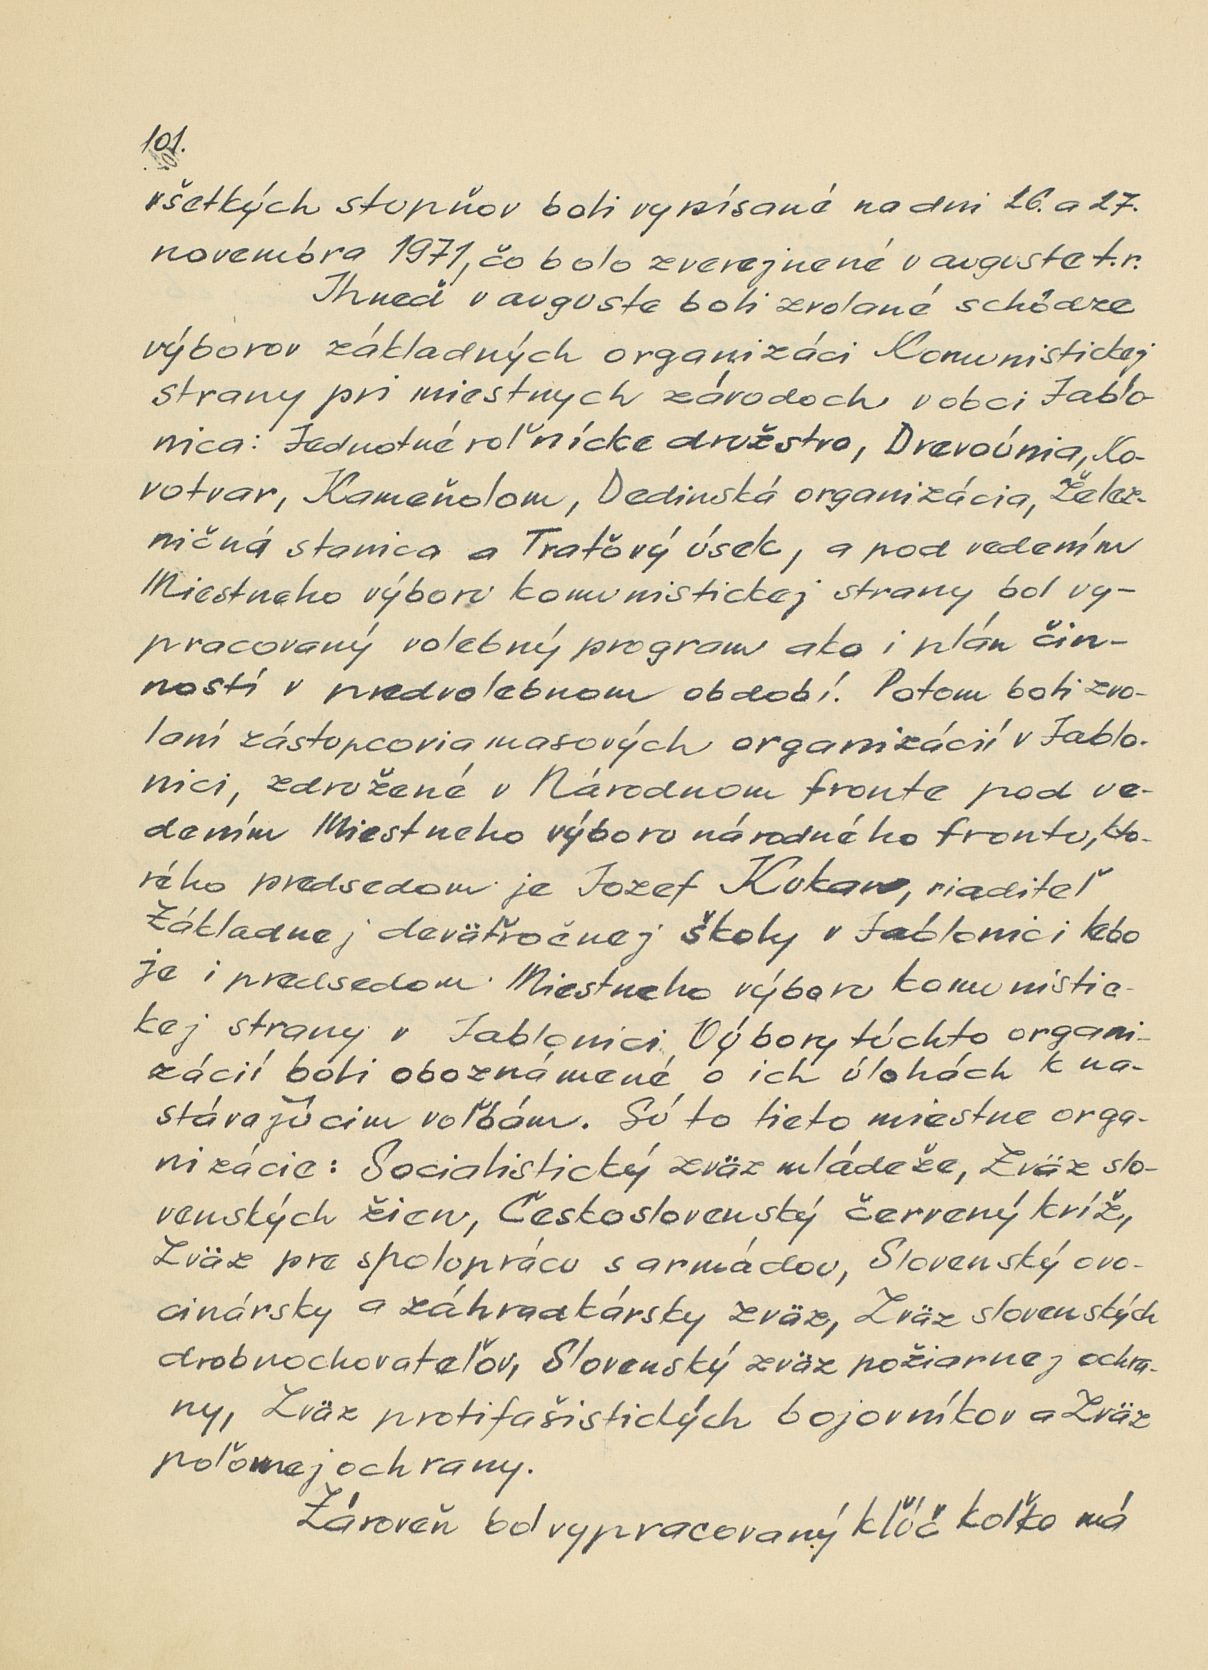 101.
všetkých stupňov boli vypísané na dni 26. a 27.
novembra 1971, čo bolo zverejnené v auguste t.r.
Ihneď v auguste boli zvolané schôdze
výborov základných organizáci Komunistickej
strany pri miestnych závodoch v obci Jablo-
nica: Jednotné roľnícke družstvo, Drevoúnia, Ko-
votvar, Kameňolom, Dedinská organizácia, Želez-
ničná stanica a Traťový úsek, a pod vedením
Miestneho výboru komunistickej strany bol vy-
pracovaný volebný program ako i plán čin-
ností v predvolebnom období. Potom boli zvo-
laní zástupcovia masových organizácií v Jablo-
nici, združené v Národnom fronte pod ve-
dením Miestneho výboru národného frontu, kto-
rého predsedom je Jozef Kukan, riaditeľ
Základnej deväťročnej školy v Jablonici lebo
je i predsedom Miestneho výboru komunistic-
kej strany v Jablonici. Výbory týchto organi-
zácií boli oboznámené o ich úlohách k na-
stávajúcim voľbám. Sú to tieto miestne orga-
nizácie: Socialistický zväz mládeže, Zväz slo-
venských žien, Československý červený kríž,
Zväz pre spoluprácu s armádou, Slovenský ovo-
cinársky a záhradkársky zväz, Zväz slovenských
drobnochovateľov, Slovenský zväz požiarnej ochra-
ny, Zväz protifašistických bojovníkov a Zväz
poľovnej ochrany.
Zároveň bol vypracovaný kľúč koľko má